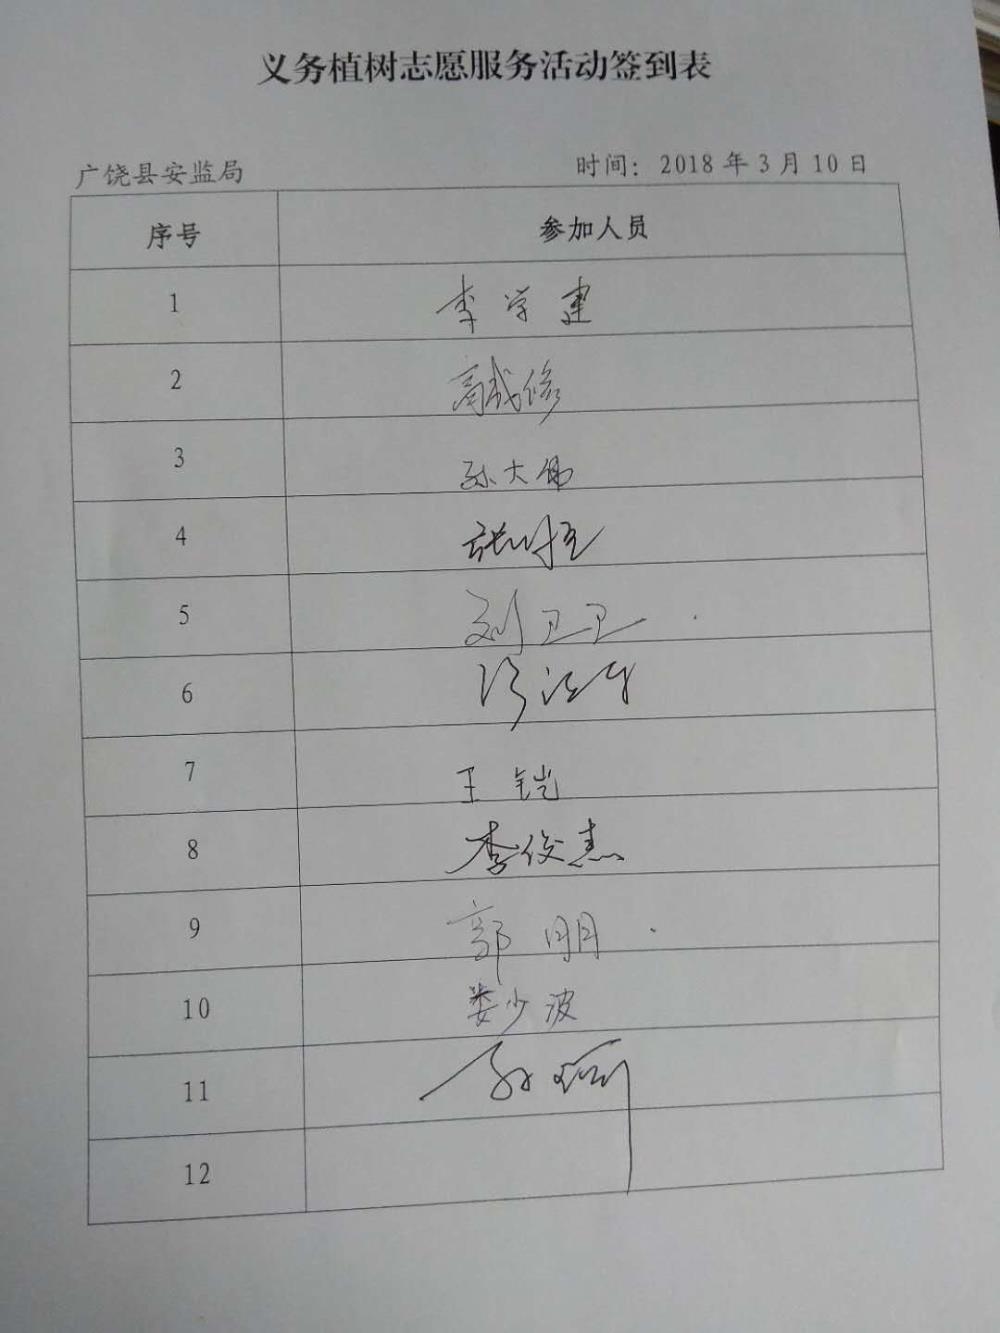 义务植树志愿服务活动签到表
广饶县安监局 时间：2018 年 3 月 10 日
序号 参加人员
1 李学建
2 高成修
3 孙大伟
4
5 刘卫卫
6
7 王铠
8 李俊杰
9 郭朋
10 娄少波
11
12